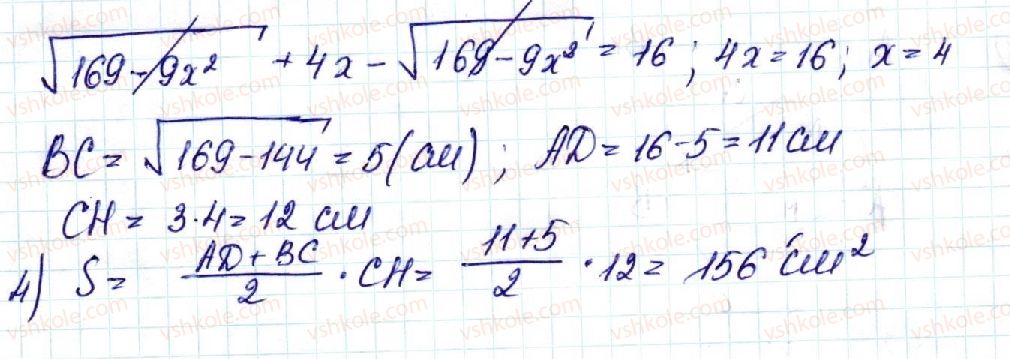 √(169-9x²) + 4x - √(169-9x²) = 16; 4x = 16; x = 4
BC = √(169-144) = 5 (см); AD = 16-5 = 11 см
CH = 3·4 = 12 см
4) S = (AD + BC)/2 · CH = (11+5)/2 · 12 = 156 см²
vshkole.com